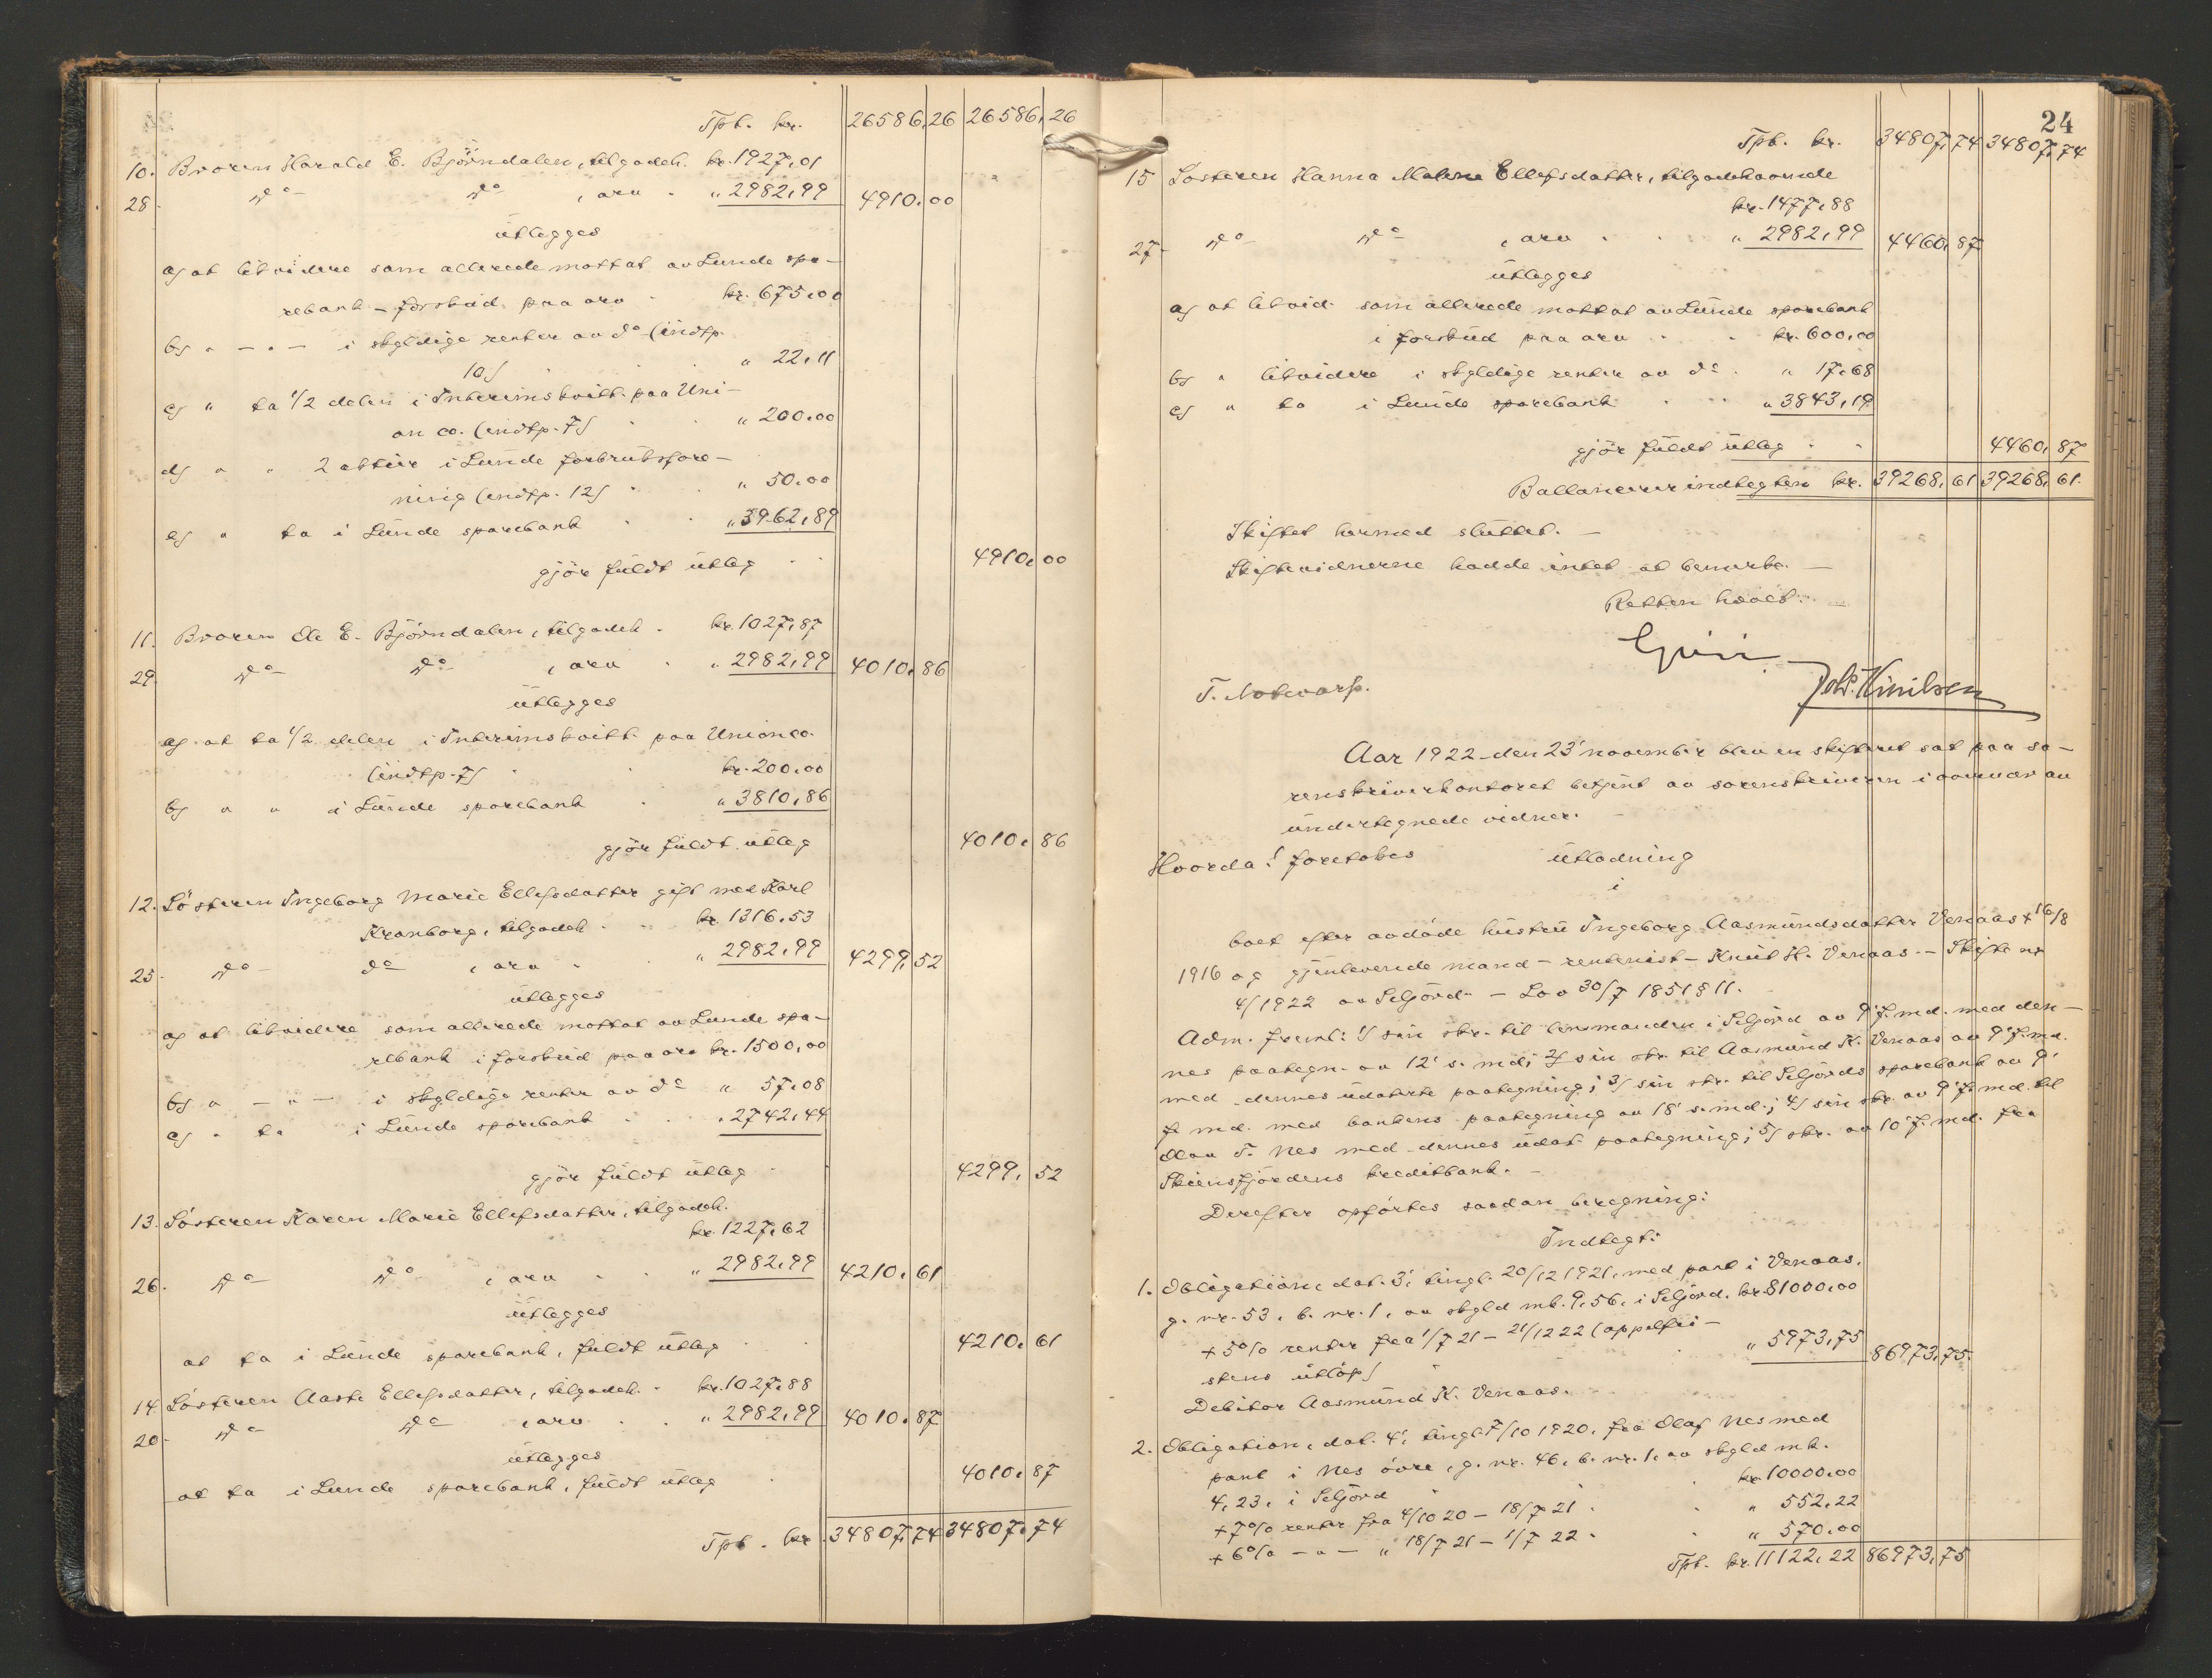 Tpt. kr. 26586,26 26586,26
10. Broren Harald E. Björndalen, tilgodeh. kr. 1927,01
28. do do , arv . „ 2982,99 4910,00
utlegges
a) at likvidere som allerede mottat av Lunde spa-
rebank - forskud paa arv . kr. 675,00
b) „ — „ — i skyldige renter av do (indtp.
10) . „ 22,11
c) „ ta 1/2 delen i Interimskvitt. paa Uni-
on co. (indtp. 7) . „ 200,00
d) „ „ 2 aktier i Lunde forbruksfore-
ning (indtp. 12) . „ 50,00
e) „ ta i Lunde sparebank . „ 3962,89
gjör fuldt utleg . 4910,00
11. Broren Ole E. Björndalen, tilgodeh. kr. 1027,87
29. do do , arv . „ 2982,99 4010,86
utlegges
a) at ta 1/2 delen i Interimskvitt. paa Union co.
(indtp. 7) . kr. 200,00
b) „ „ i Lunde sparebank . „ 3810,86
gjör fuldt utleg 4010,86
12. Sösteren Ingeborg Marie Ellefsdatter gift med Karl
Kranborg, tilgodeh. kr. 1316,53
25. do do , arv . „ 2982,99 4299,52
utlegges
a) at likvidere som allerede mottat av Lunde spa-
rebank i forskud paa arv kr. 1500,00
b) „ — „ — i skyldige renter av do „ 57,08
c) „ ta i Lunde sparebank . „ 2742,44
gjör fuldt utleg . 4299,52
13. Sösteren Karen Marie Ellefsdatter, tilgodeh.
kr. 1227,62
26. do do , arv . „ 2982,99 4210,61
utlegges
at ta i Lunde sparebank, fuldt utleg . 4210,61
14. Sösteren Aaste Ellefsdatter, tilgodeh. kr. 1027,88
20. do do , arv . „ 2982,99 4010,87
utlegges
at ta i Lunde sparebank, fuldt utleg . 4010,87
Tpt. kr. 34807,74 34807,74
24
Tpt. kr. 34807,74 34807,74
15 Sösteren Hanna Malene Ellefsdatter, tilgodehavende
kr. 1477,88
27. do do , arv . „ 2982,99 4460,87
utlegges
a) at likvid. som allerede mottat av Lunde sparebank
i forskud paa arv . kr. 600,00
b) „ likvidere i skyldige renter av do . „ 17,68
c) „ ta i Lunde sparebank . „ 3843,19
gjör fuldt utleg . 4460,87
Ballancerer indtegten kr. 39268,61 39268,61.
Skiftet hermed sluttet. —
Skiftevidnerne hadde intet at bemerke. —
Retten hævet. —
T. Notevarp.
Joh. Knilsen
Aar 1922 den 23' november blev en skifteret sat paa so-
renskriverkontoret betjent av sorenskriveren i overvær av
undertegnede vidner.
Hvorda: foretokes utlodning
i
boet efter avdöde hustru Ingeborg Aasmundsdatter Venaas + 16/8
1916 og gjenlevende mand - rentenist - Knut H. Venaas. - Skifte nr
4/1922 av Seljord. - Lov 30/7 1851 § 11.
Adm. freml: 1) sin skr. til lensmanden i Seljord av 9' f. md. med den-
nes paategn. av 12' s. md; 2) sin skr. til Aasmund K. Venaas av 9' f. md.
med dennes udaterte paategning; 3) sin skr. til Seljords sparebank av 9'
f. md. med bankens paategning av 18' s. md.; 4) sin skr. av 9' f. md. til
Olav T. Nes med dennes udat. paategning; 5) skr. av 10' f. md. fra
Skiensfjordens kreditbank. —
Derefter opförtes saadan beregning:
Indtegt:
1. Obligation, dat. 3', tingl. 20/12 1921, med pant i Venaas,
g. nr. 53, b. nr. 1, av skyld mk. 9,56, i Seljord. kr. 81000,00
+ 5% renter fra 1/7 21 - 21/12 22 (appelfri-
stens utlöp) „ 5973,75 86973,75.
Debitor Aasmund K. Venaas.
2. Obligation, dat. 4', tingl. 7/10 1920, fra Olaf Nes med
pant i Nes övre, g. nr. 46, b. nr. 1, av skyld mk.
4,23, i Seljord . kr. 10000,00
+ 7% renter fra 4/10 20 - 18/7 21 . „ 552,22
+ 6% — „ — „ 18/7 21 - 1/7 22 . „ 570,00
Tpt. kr. 11122,22 86973,75